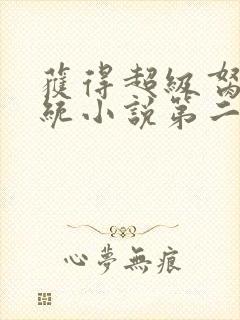 獲得超級
統小說第二
心夢無痕